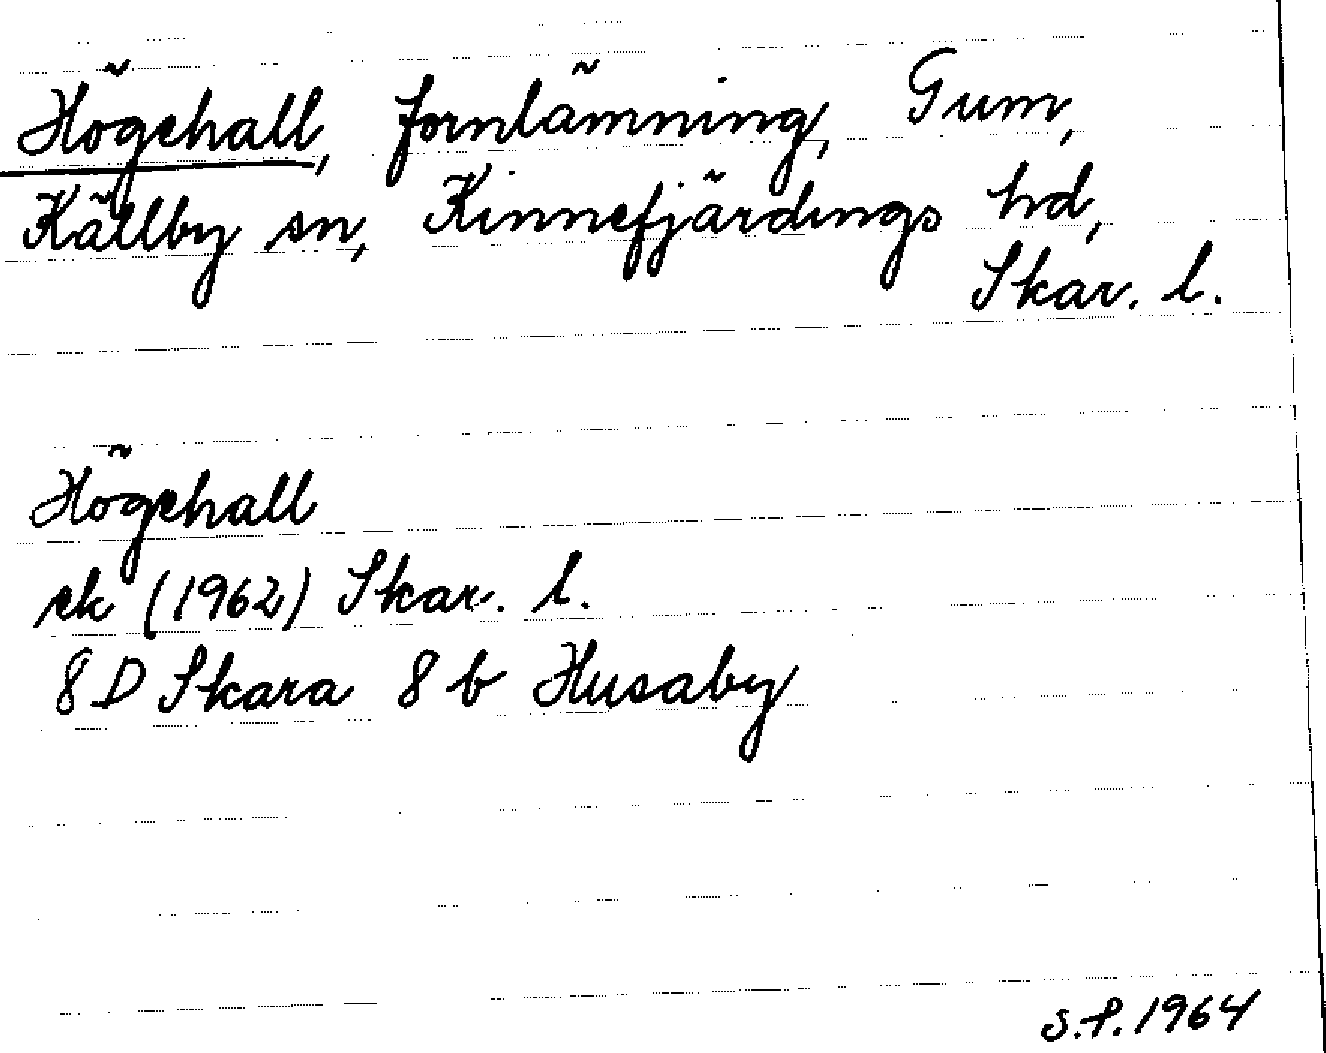 Högehall, fornlämning, Gum,
Källby sn, Kinnefjärdings hd,
Skar. l.
Högehall
ek (1962) Skar. l.
8 D Skara 8 b Husaby
S.P. 1964